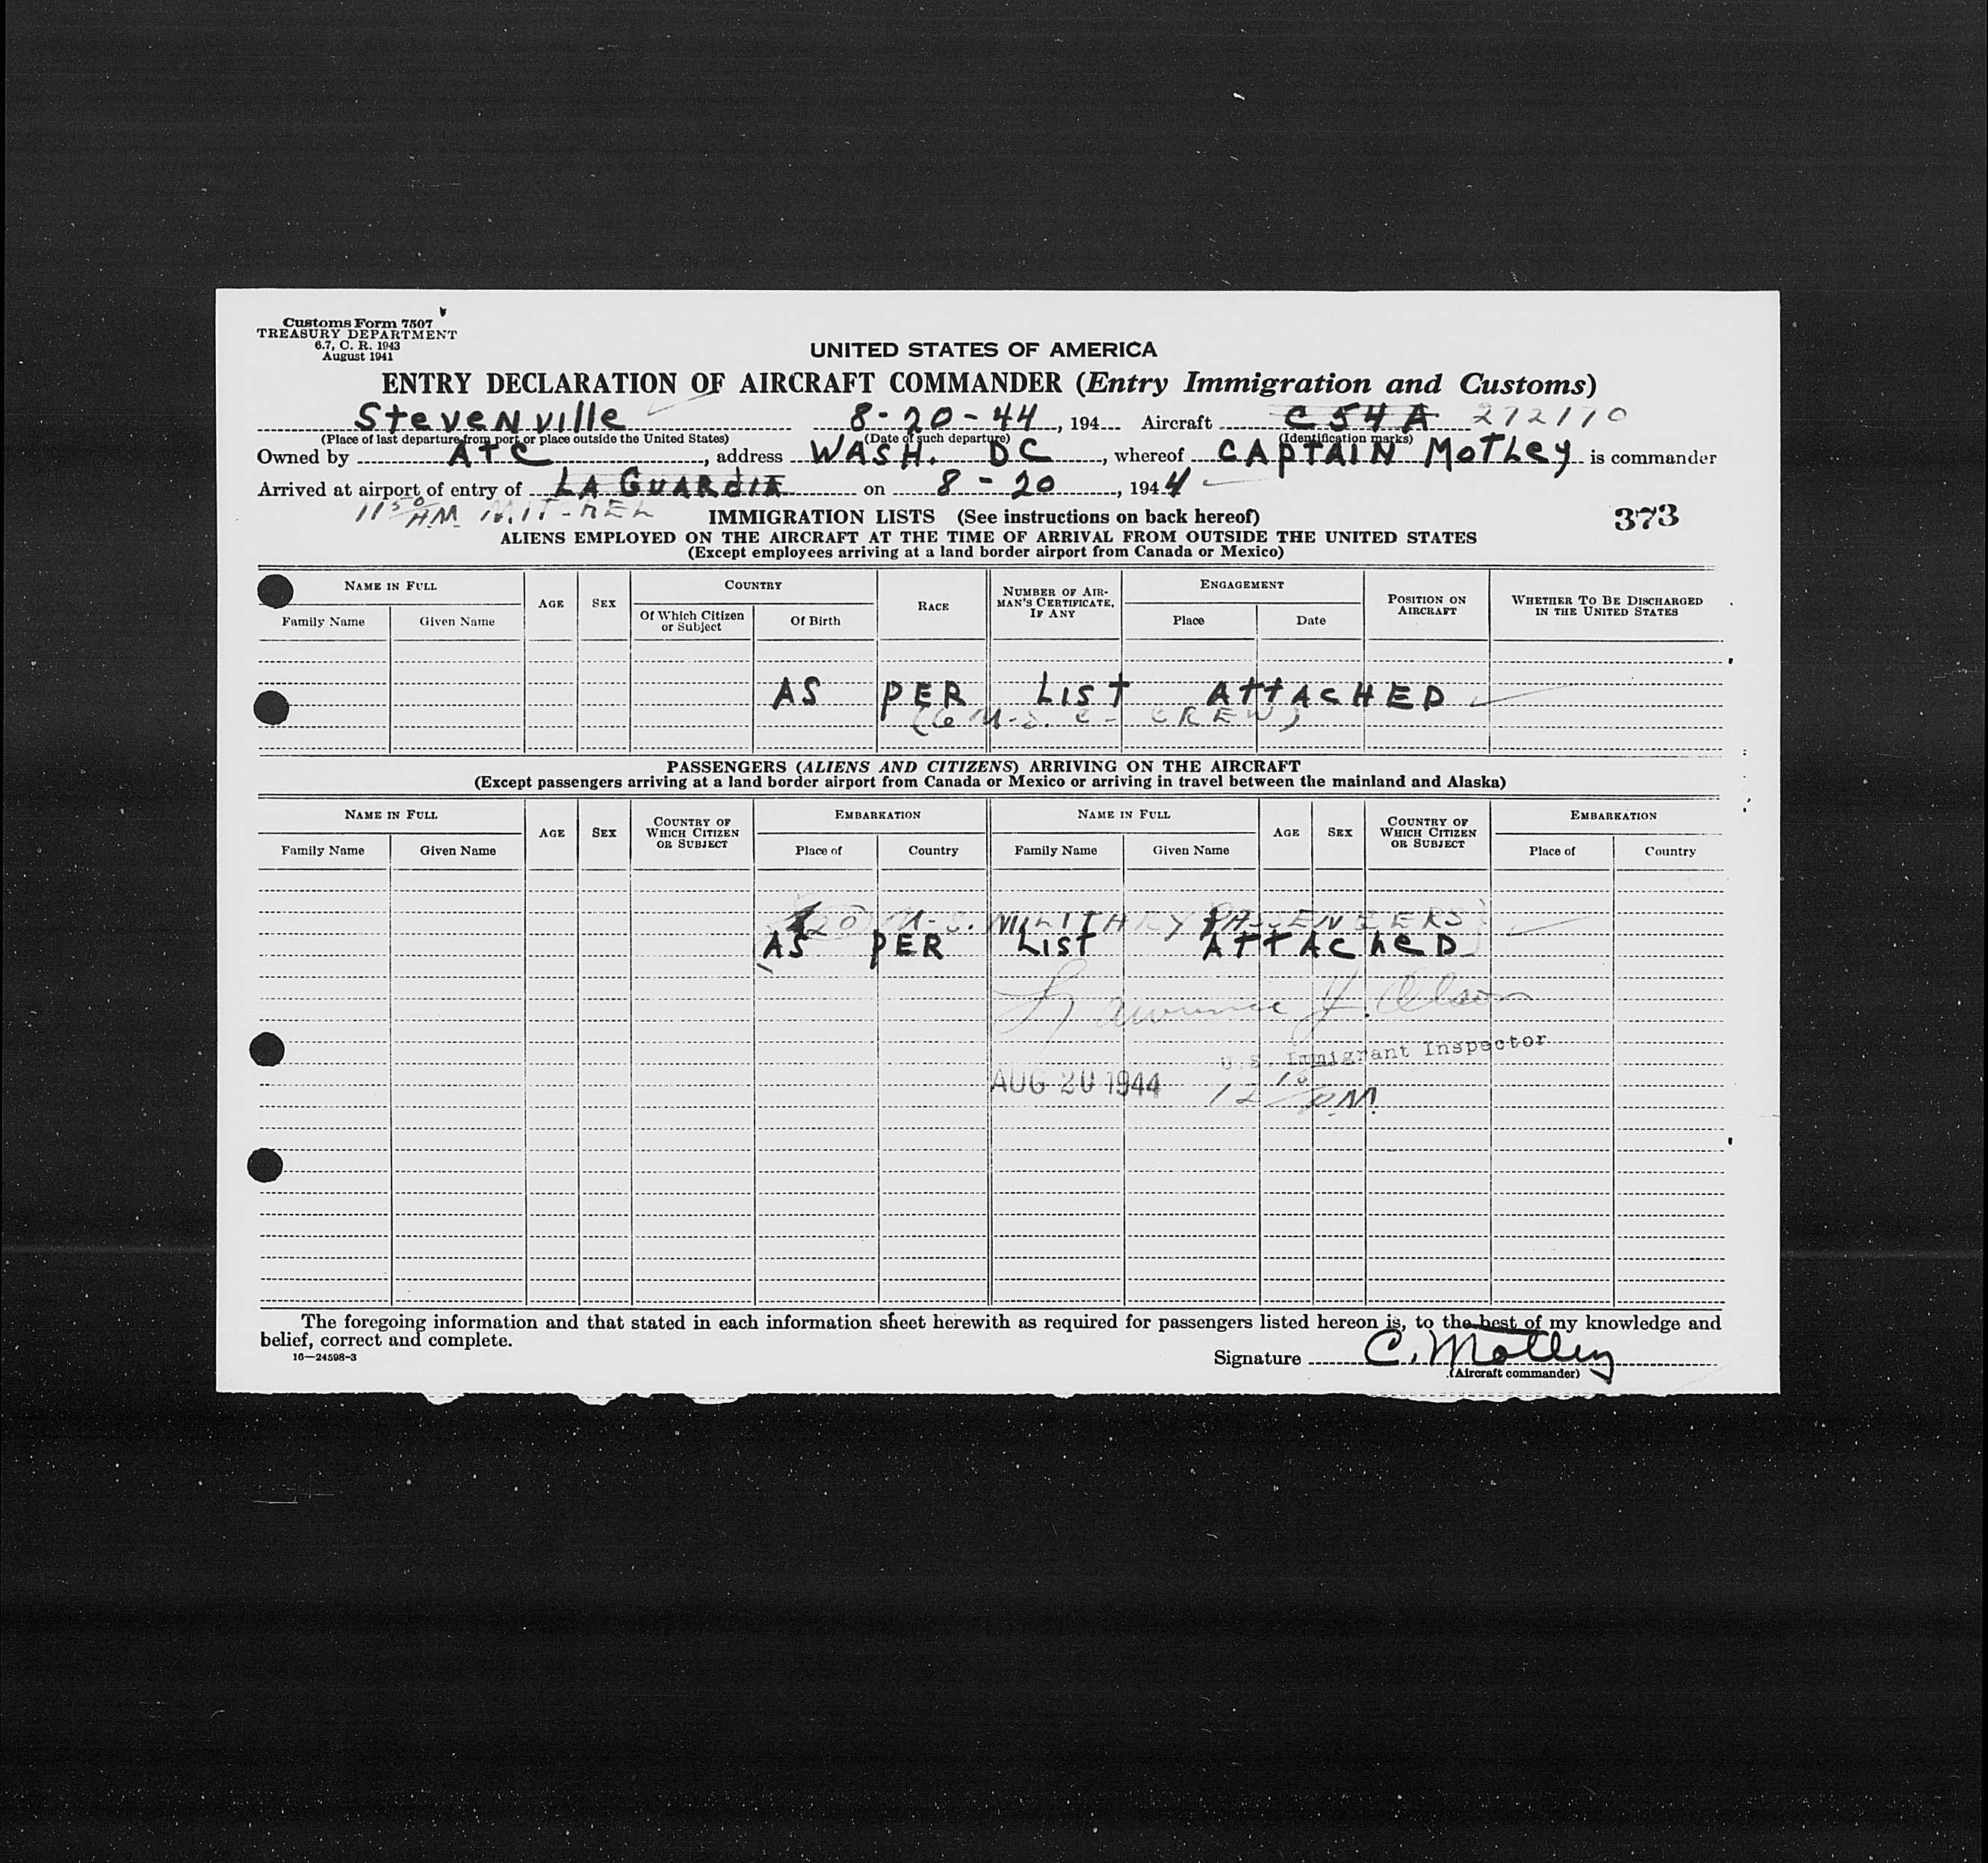 Customs Form 7507
TREASURY DEPARTMENT
6.7, C. R. 1943
August 1941
UNITED STATES OF AMERICA
ENTRY DECLARATION OF AIRCRAFT COMMANDER (Entry Immigration and Customs)
StevenVille 8-20-44, 194 Aircraft C 54 A 272110
(Place of last departure from port or place outside the United States) (Date of such departure) (Identification marks)
Owned by ATC, address WASH. DC, whereof CAPTAIN MOTLEY is commander
Arrived at airport of entry of LA GUARDIA on 8-20, 1944
11 50 AM MITCHEL
IMMIGRATION LISTS (See instructions on back hereof) 373
ALIENS EMPLOYED ON THE AIRCRAFT AT THE TIME OF ARRIVAL FROM OUTSIDE THE UNITED STATES
(Except employees arriving at a land border airport from Canada or Mexico)
NAME IN FULL AGE SEX COUNTRY RACE NUMBER OF AIRMAN'S CERTIFICATE, IF ANY ENGAGEMENT POSITION ON AIRCRAFT WHETHER TO BE DISCHARGED IN THE UNITED STATES
Family Name Given Name Of Which Citizen or Subject Of Birth Place Date
AS PER LIST ATTACHED
(6 U.S. C- CREW)
PASSENGERS (ALIENS AND CITIZENS) ARRIVING ON THE AIRCRAFT
(Except passengers arriving at a land border airport from Canada or Mexico or arriving in travel between the mainland and Alaska)
NAME IN FULL AGE SEX COUNTRY OF WHICH CITIZEN OR SUBJECT EMBARKATION NAME IN FULL AGE SEX COUNTRY OF WHICH CITIZEN OR SUBJECT EMBARKATION
Family Name Given Name Place of Country Family Name Given Name Place of Country
20 U.S. MILITARY PASSENGERS
AS PER LIST ATTACHED
Lawrence J. Olson
U.S. Immigrant Inspector
AUG 20 1944 12 15 PM
The foregoing information and that stated in each information sheet herewith as required for passengers listed hereon is, to the best of my knowledge and
belief, correct and complete.
16—24598-3
Signature C. Motley
(Aircraft commander)